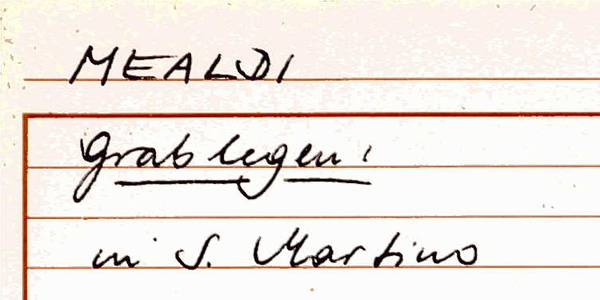 MEALDI
Grablegen:
in S. Martino